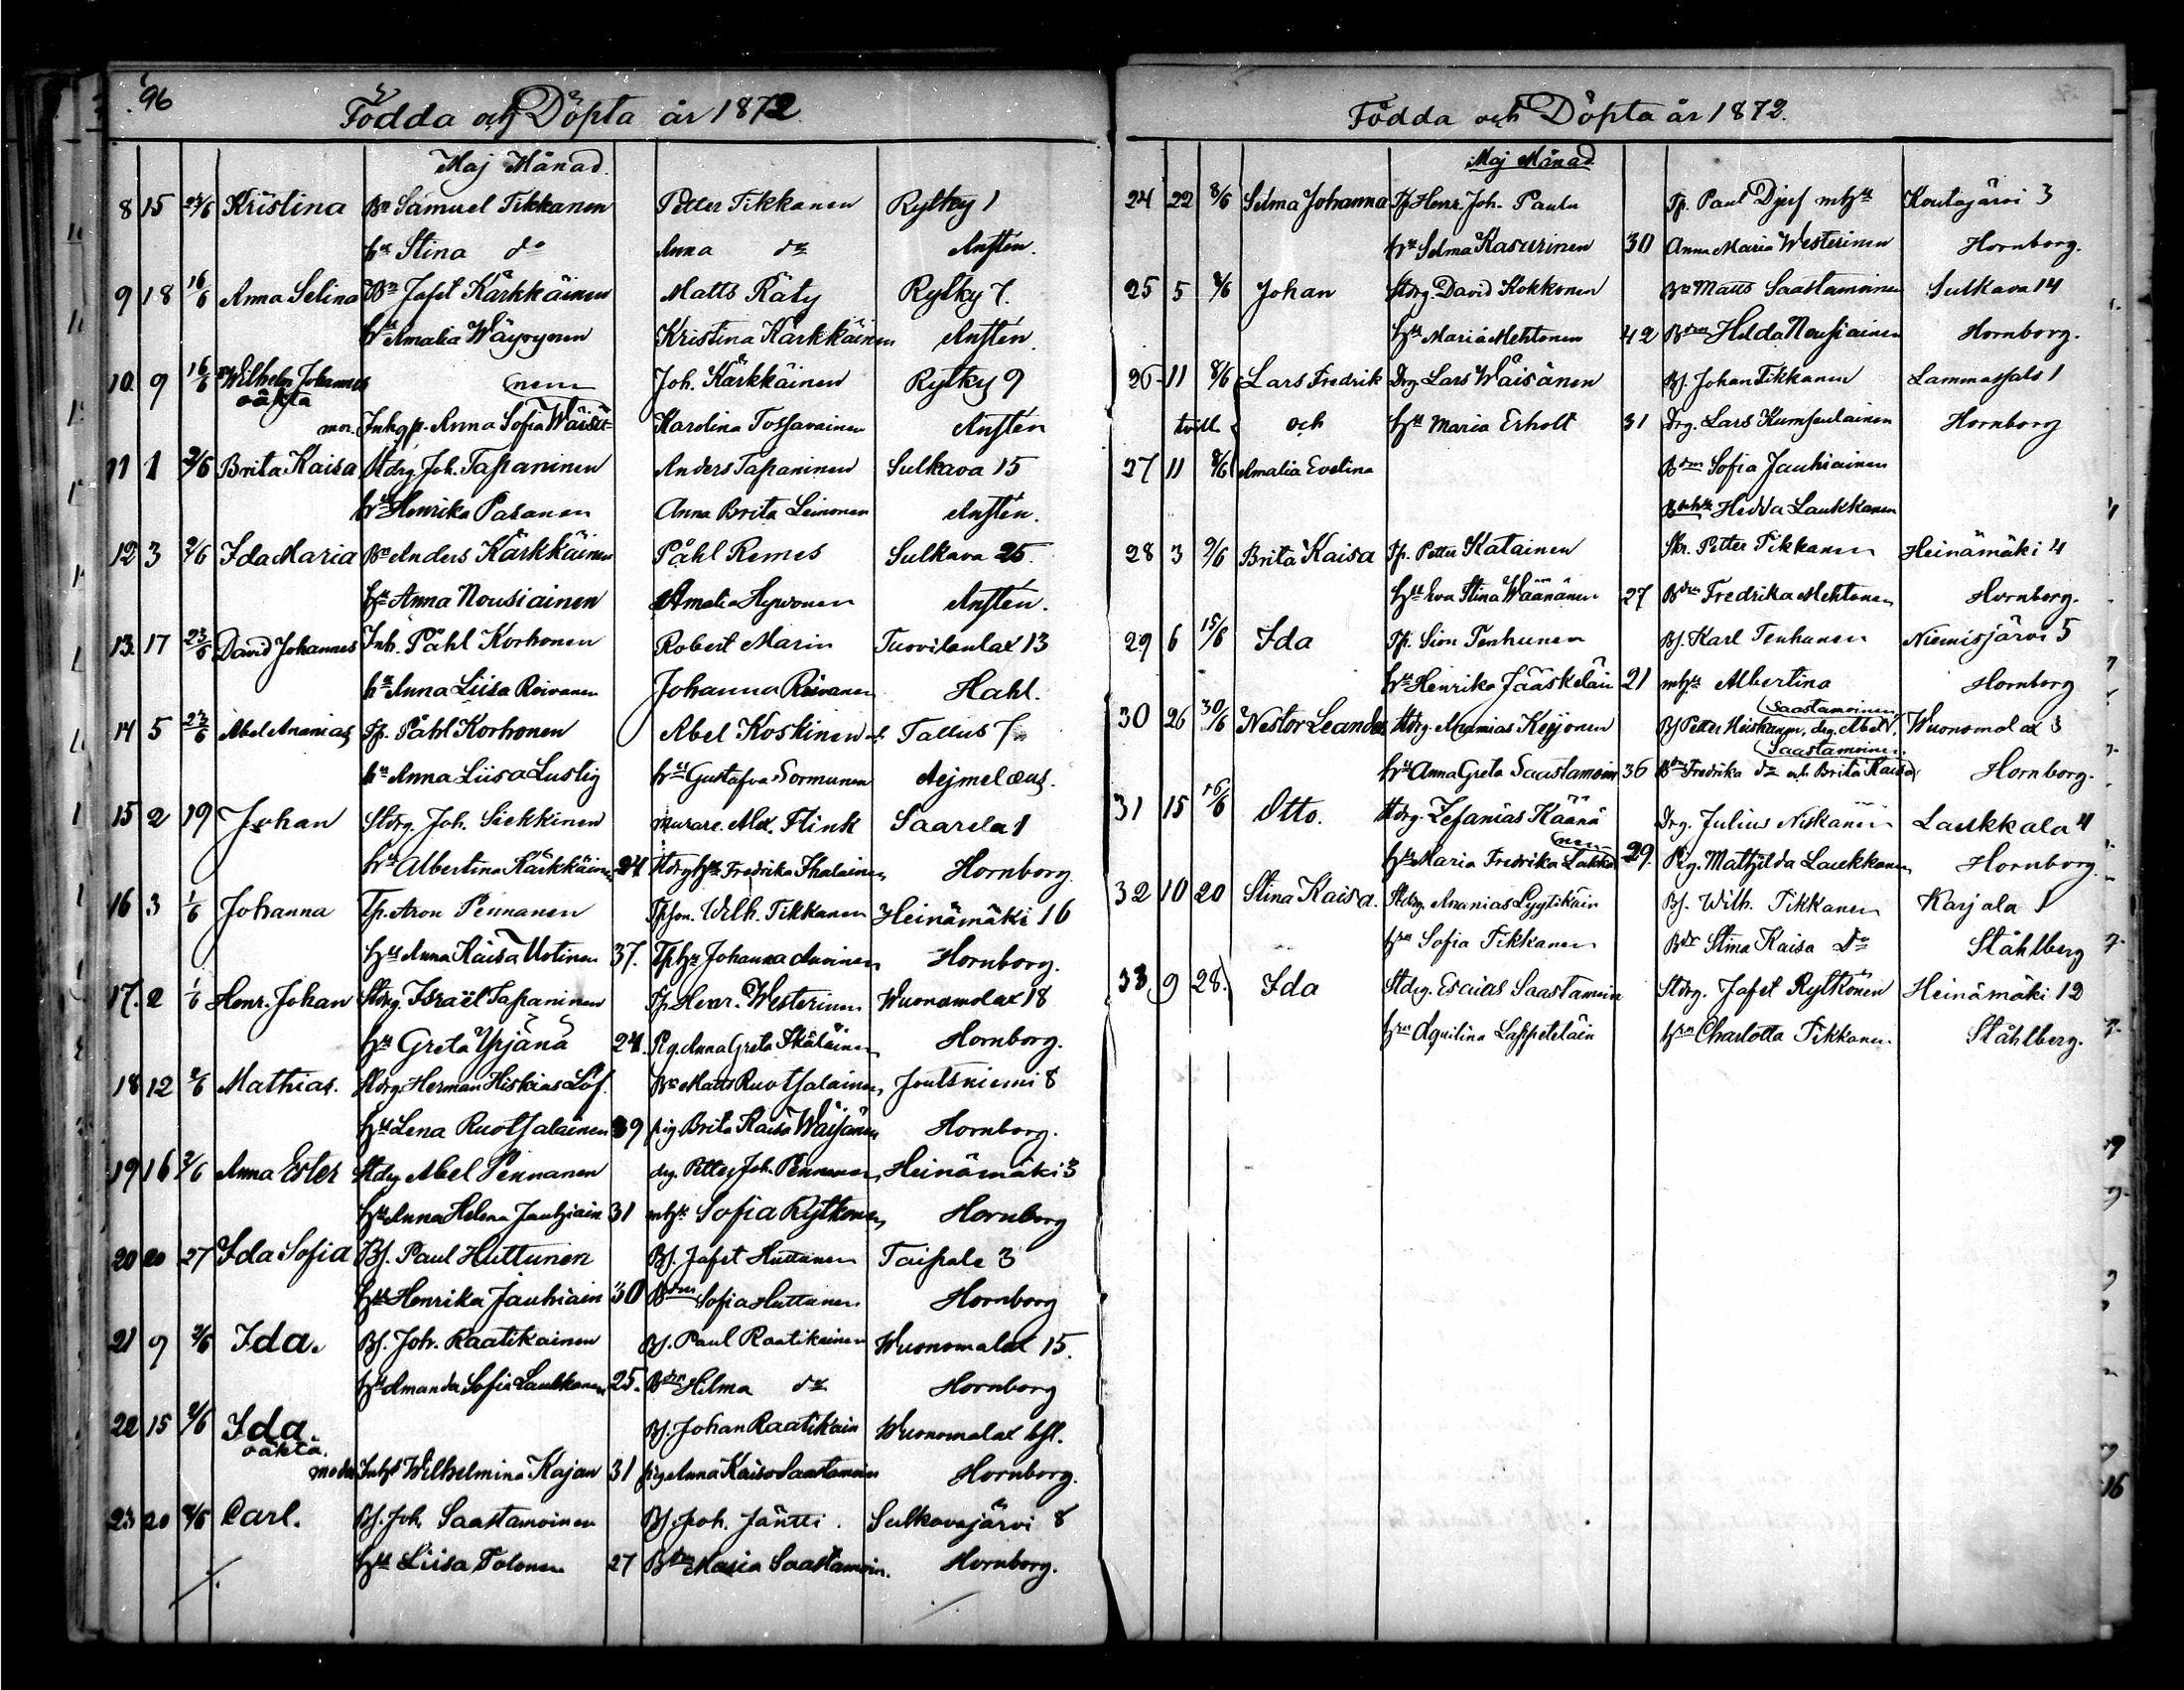 96
Födda och Döpta år 1872.
Maj Månad.
8 15 23/6 Kristina Bn Samuel Tikkanen Petter Tikkanen Rytky 1
hu Stina do Anna do Anstén.
9 18 16/6 Anna Selina Bn Jafet Kärkkäinen Matts Räty Rytky 7.
hu Amalia Wäyrynen Kristina Kärkkäinen Anstén
10. 9 16/6 Wilhelm Johannes Joh. Kärkkäinen Rytky 9
oäkta
mor. Inhgp. Anna Sofia Wäisä=nen Karolina Tossavainen Anstén
11 1 2/6 Brita Kaisa Stdrg. Joh. Tapaninen Anders Tapaninen Sulkava 15
hu Henrika Pasanen Anna Brita Leinonen Anstén.
12 3 2/6 Ida Maria Bn Anders Kärkkäinen Påhl Remes Sulkava 25.
hu Anna Nousiainen Amalia Hyvönen Anstén.
13. 17 23/6 David Johannes Inh. Påhl Korhonen Robert Marin Tuovilanlax 13
hu Anna Liisa Roivanen Johanna Roivanen Hahl.
14 5 Abel Ananias Tp. Påhl Korhonen Abel Koskinen Tallus 7
hu Anna Liisa Lustig hu Gustafva Sormunen Aejmelæus.
15 2 19 Johan Stdrg. Joh. Siekkinen murare. Alex. Flink Saarela 1
hu Albertina Kärkkäinen 24 Stdrghu Fredrika Ihalainen Hornborg.
16 3 1/6 Johanna Tp. Aron Pennanen Tpson. Wilh. Tikkanen Heinämäki 16
hu Anna Kaisa Uotinen 37. Tphu Johanna Auvinen Hornborg.
17. 2 1/6 Henr. Johan Stdrg. Israël Tapaninen Tp. Henr. Westerinen Wuonamolax 18
hu Greta Yrjänä 24. Pig. Anna Greta Ikäläinen Hornborg.
18 12 2/6 Mathias. Stdrg. Herman Hiskias Löf. Bn Matts Ruotsalainen Joutsniemi 8
hu Lena Ruotsalainen 39 pig. Brita Kaisa Wäisänen Hornborg.
19 16 2/6 Anna Ester Stdrg Abel Pennanen drg. Petter Joh. Pennanen Heinämäki 3
hu Anna Helena Jauhiain 31 mhu Sofia Rytkönen Hornborg
20 20 27 Ida Sofia Bs. Paul Huttunen Bs. Jafet Huttunen Taipale 3
hu Henrika Jauhiain 30 Bdr Sofia Huttunen Hornborg
21 9 2/6 Ida. Bs. Joh. Raatikainen Bs. Paul Raatikainen Wuonomalax 15.
hu Amanda Sofia Laukkanen 25. Bdr Hilma do Hornborg
22 15 2/6 Ida. Bs. Johan Raatikain Wuonomalax bhl.
oäkta.
moder Inhst Wilhelmina Kajan 31 pig Anna Kaisa Saastamoin Hornborg.
23 20 Carl. Bs. Joh. Saastamoinen Bs. Joh. Jäntti. Sulkavajärvi 8
hu Liisa Tolonen 27 Bdr Maria Saastamoin. Hornborg.
Födda och Döpta år 1872.
Maj Månad
24 22 8/6 Selma Johanna Tp. Henr. Joh. Paulu Tp. Paul Djerf mhu Koutajärvi 3
hu Selma Kasurinen 30 Anna Maria Westerinen Hornborg.
25 5 8/6 Johan Stdrg. David Kokkonen Bn Matts Saastamoinen Sulkava 14
hu Maria Mehtonen 42 Bdr Hilda Nousiainen Hornborg.
26 11 8/6 Lars Fredrik Drg. Lars Wäisänen Bs. Johan Tikkanen Lammassalo 1
tvill. och hu Maria Erholt 31 Drg. Lars Kumpulainen Hornborg
27 11 8/6 Amalia Evelina Bdr Sofia Jauhiainen
Bnhu Hedda Laukkanen
28 3 9/6 Brita Kaisa Tp. Petter Katainen Skr. Petter Tikkanen Heinämäki 4
hu Eva Stina Wäänänen 27 Bdr Fredrika Mehtonen Hornborg.
29 6 15/6 Ida Tp. Sion Tenhunen Bs. Karl Tenhunen Niemisjärvi 5
hu Henrika Jääskeläin 21 mhu Albertina Hornborg
30 26 30/6 Nestor Leander Stdrg. Ananias Keijonen Bs Petter Heiskanen, drg. Abel Saastamoinen, Wuonomalax 3
hu Anna Greta Saastamoin 36 Bdr Fredrika do och Brita Kaisa Saastamoinen Hornborg.
31 15 16/6 Otto. Stdrg. Zefanias Käänä Drg. Julius Niskanen Laukkala 4
hu Maria Fredrika Lakka=nen 29. Pig. Mathilda Laukkanen Hornborg
32 10 20 Stina Kaisa. Stdrg. Ananias Lyytikäin Bs. Wilh. Tikkanen Karjala 1
hu Sofia Tikkanen Bdr Stina Kaisa Do Ståhlberg
33 9 28. Ida Stdrg. Esaias Saastamoin Stdrg. Jafet Rytkönen Heinämäki 12
hu Aquilina Lappeteläin hu Charlotta Tikkanen. Ståhlberg.